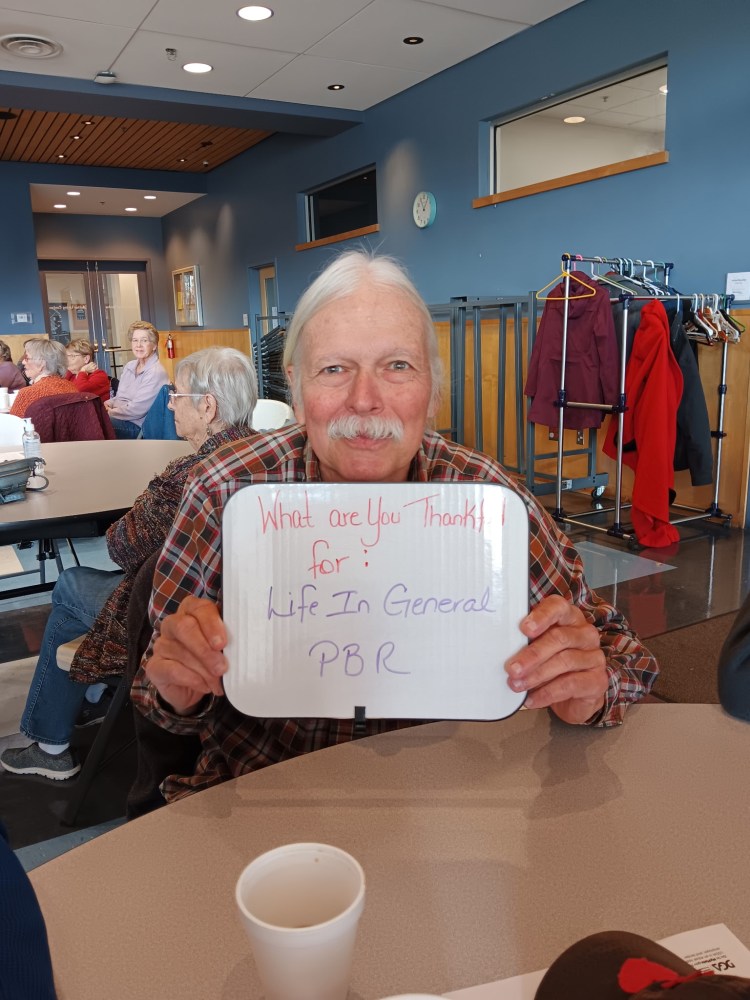 What are You Thankful
for:
Life In General
PBR